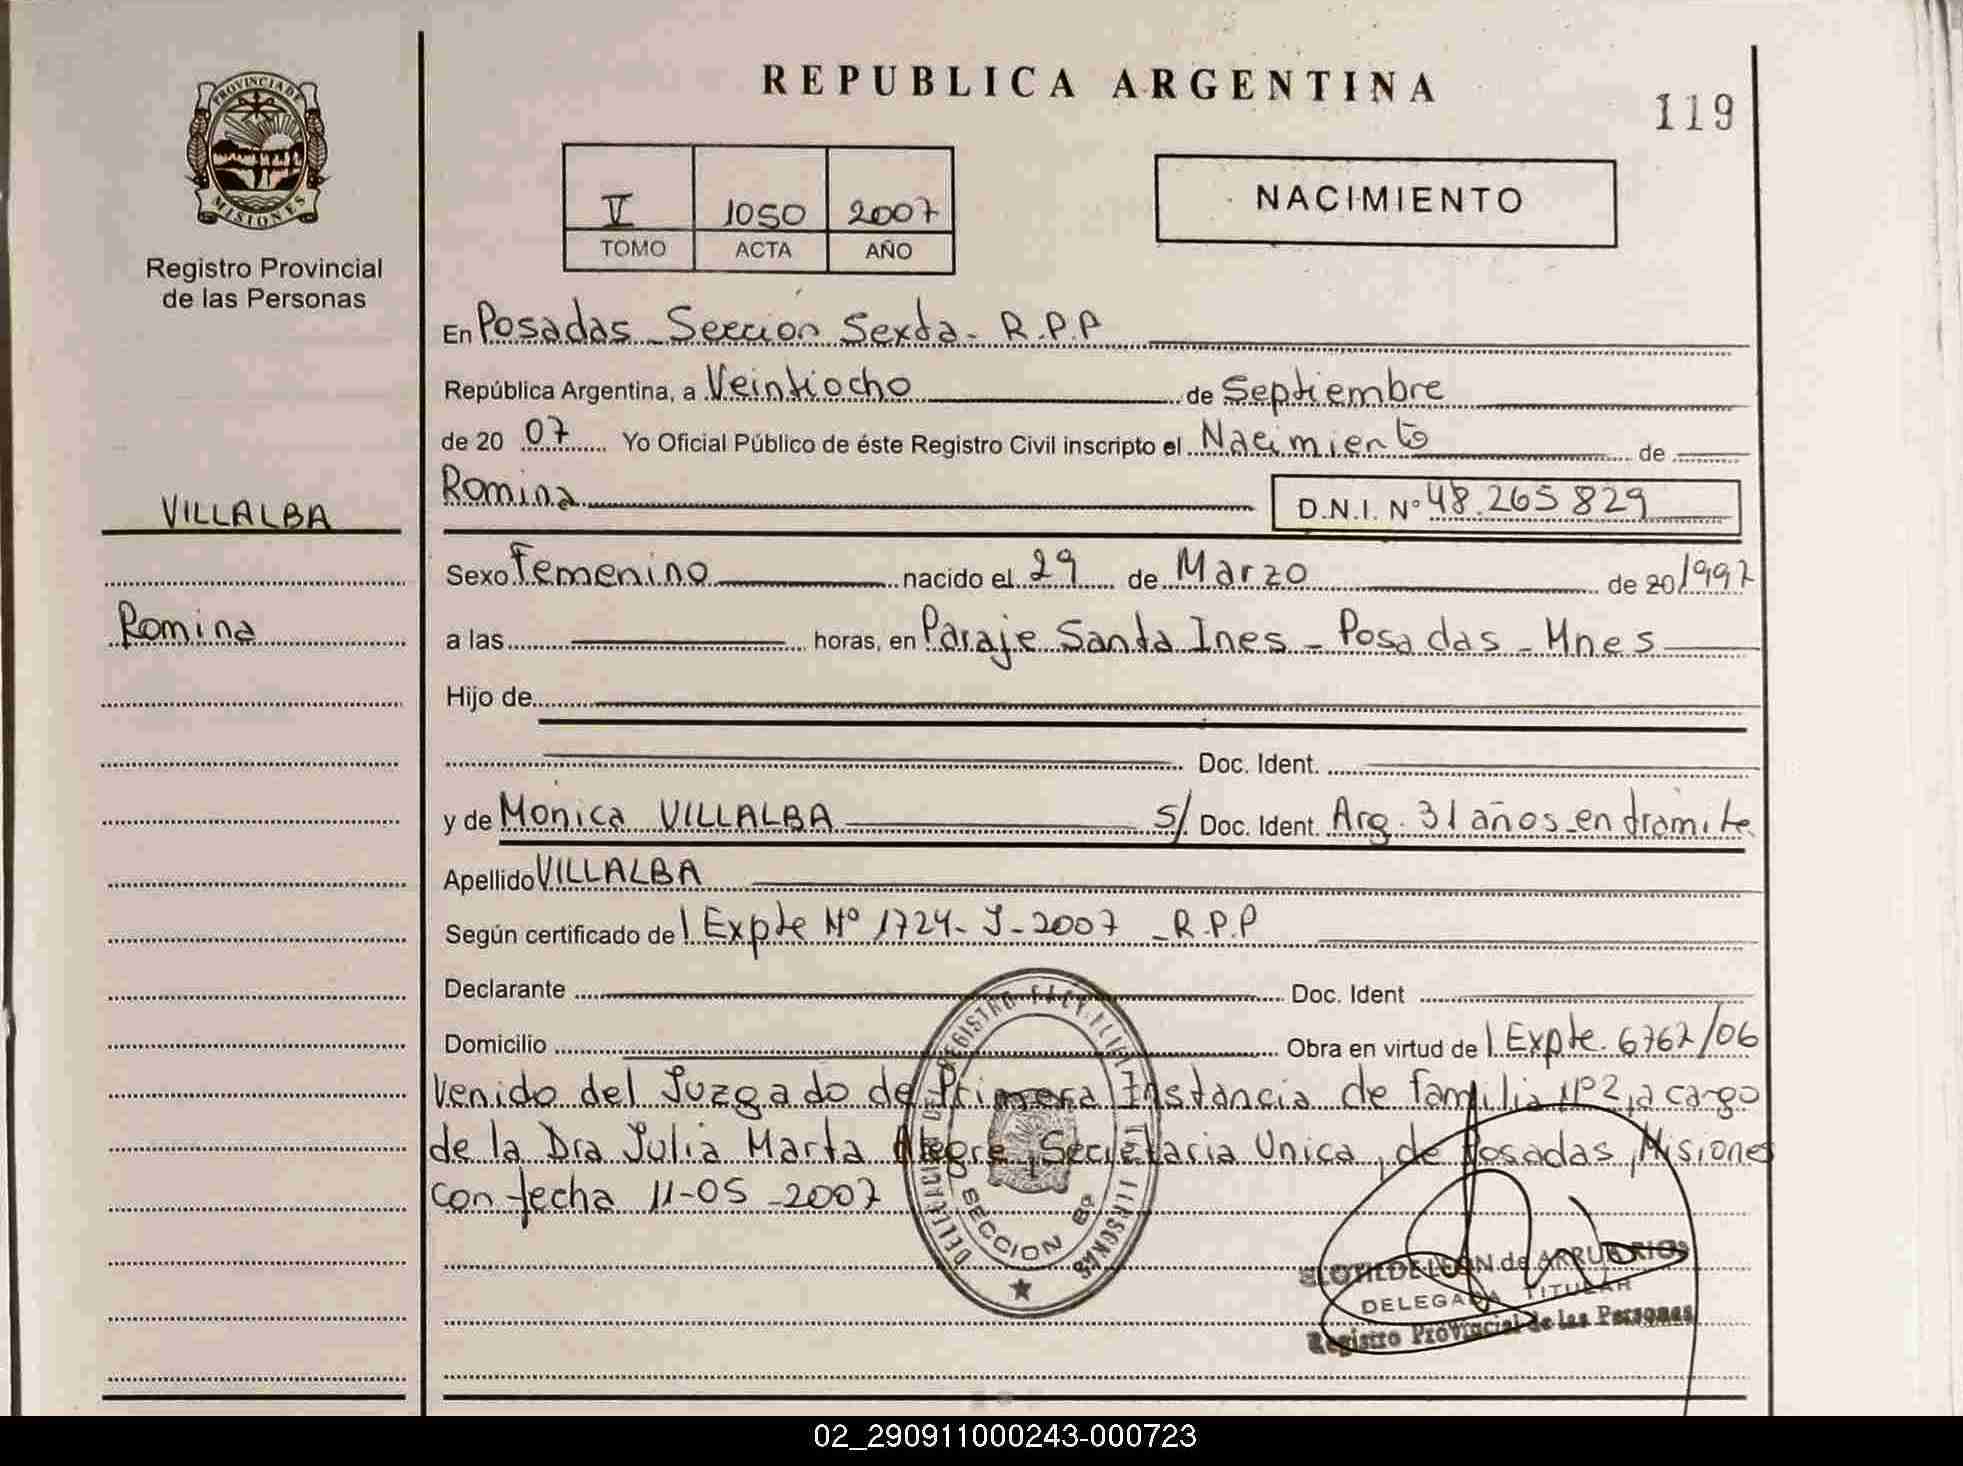 PROVINCIA DE
MISIONES
Registro Provincial
de las Personas
VILLALBA
Romina
REPUBLICA ARGENTINA
119
V 1050 2007
TOMO ACTA AÑO
NACIMIENTO
En Posadas - Seccion Sexta - R.P.P
República Argentina, a Veintiocho de Septiembre
de 20 07 Yo Oficial Público de éste Registro Civil inscripto el Nacimiento de
Romina D.N.I. N° 48.265 829
Sexo Femenino nacido el 29 de Marzo de 20/1997
a las horas, en Paraje Santa Ines - Posadas - Mnes
Hijo de
Doc. Ident.
y de Monica VILLALBA S/ Doc. Ident. Arg. 31 años en tramite
Apellido VILLALBA
Según certificado de / Expte N° 1724- J - 2007 - R.P.P
Declarante Doc. Ident
Domicilio Obra en virtud de / Expte. 6767/06
Venido del Juzgado de Primera Instancia de familia N° 2, a cargo
de la Dra Julia Marta Alegre, Secretaria Unica, de Posadas, Misiones
con fecha 11-05-2007
SECCION
CLOTILDE LEON de ARRUA RIOS
DELEGADA TITULAR
Registro Provincial de las Personas
02_290911000243-000723